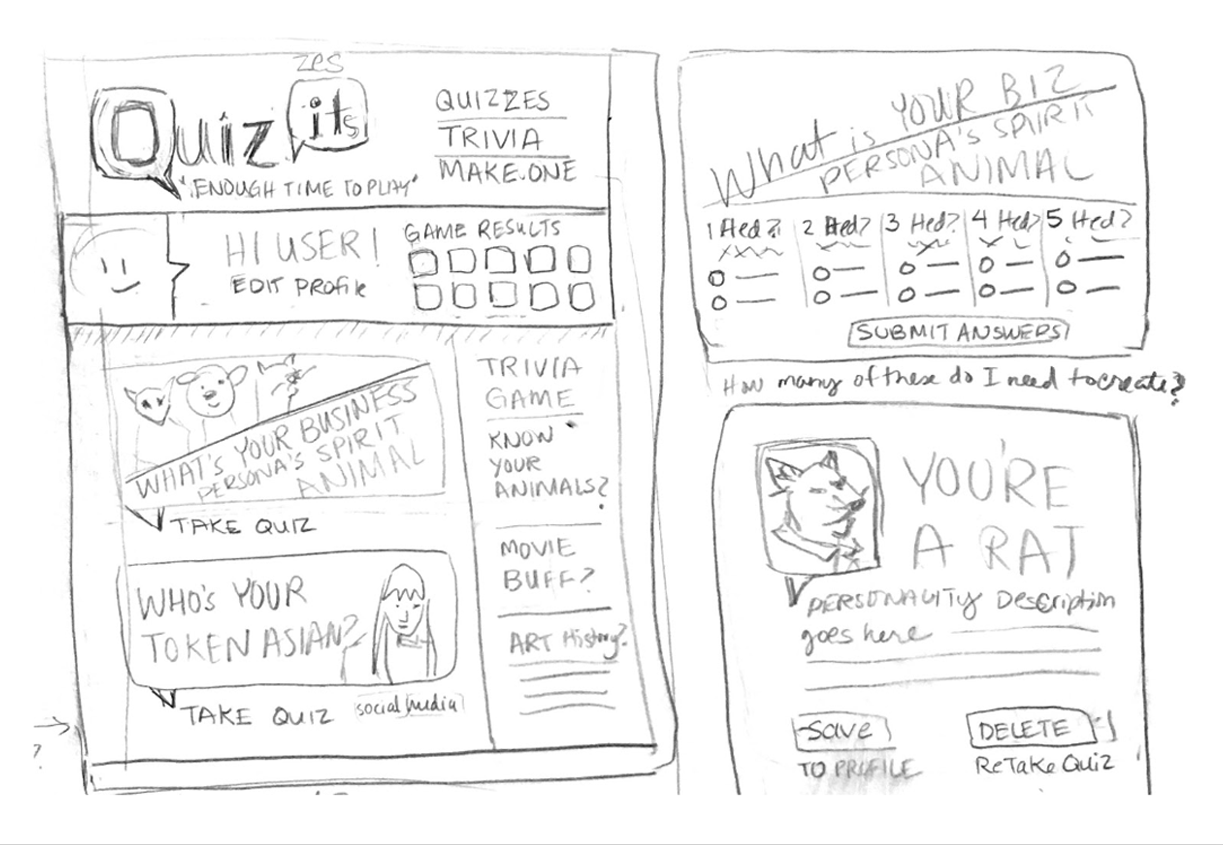 zes
Quiz its
"ENOUGH TIME TO PLAY"
QUIZZES
TRIVIA
MAKE.ONE
HI USER!
EDIT PROFILE
GAME RESULTS
WHAT'S YOUR BUSINESS
PERSONA'S SPIRIT
ANIMAL
TAKE QUIZ
WHO'S YOUR
TOKEN ASIAN?
TAKE QUIZ
social media
TRIVIA
GAME
KNOW
YOUR
ANIMALS?
MOVIE
BUFF?
ART History?
?
What is YOUR BIZ
PERSONA'S SPIRIT
ANIMAL
1 Hed? 2 Hed? 3 Hed? 4 Hed? 5 Hed?
SUBMIT ANSWERS
How many of these do I need to create?
YOU'RE
A RAT
PERSONALITY Description
goes here
Save
TO PROFILE
DELETE
ReTake Quiz